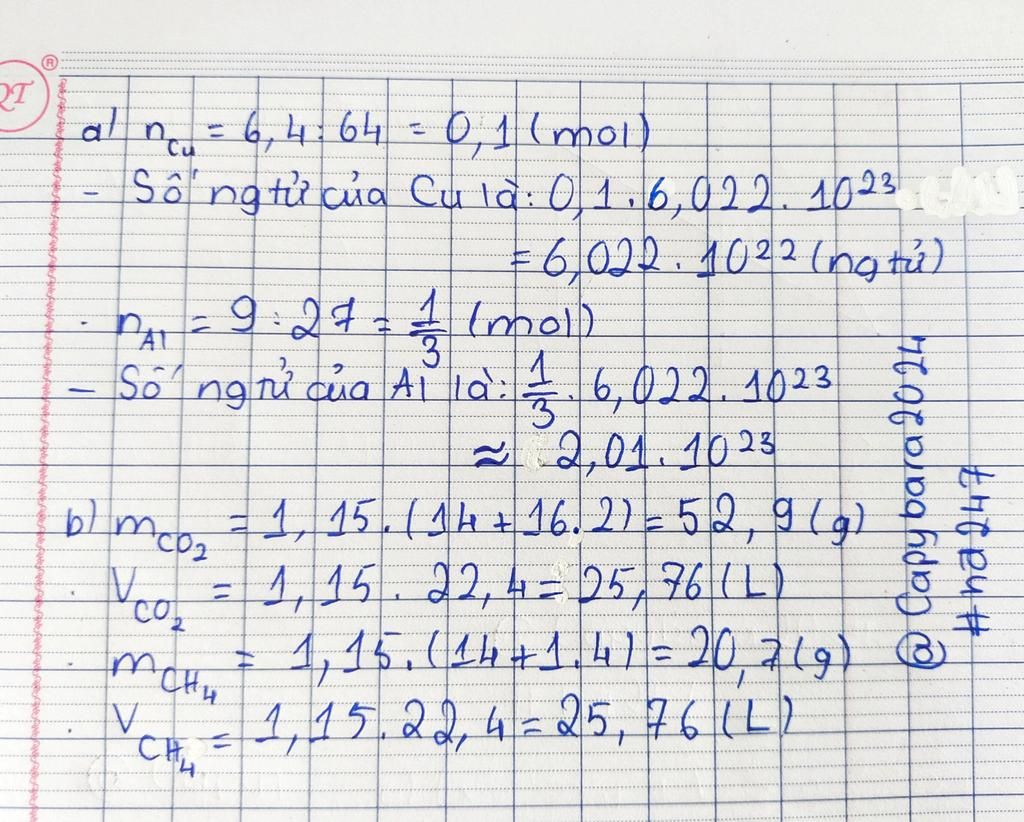 RT ®
a) n_Cu = 6,4 : 64 = 0,1 (mol)
- Số ng tử của Cu là: 0,1 . 6,022 . 10²³
= 6,022 . 10²² (ng tử)
. n_Al = 9 : 27 = 1/3 (mol)
- Số ng tử của Al là: 1/3 . 6,022 . 10²³
≈ 2,01 . 10²³
b) m_CO₂ = 1,15 . (14 + 16.2) = 52,9 (g)
. V_CO₂ = 1,15 . 22,4 = 25,76 (L)
. m_CH₄ = 1,15 . (14 + 1.4) = 20,7 (g)
. V_CH₄ = 1,15 . 22,4 = 25,76 (L)
@ Capybara2024
#hd247